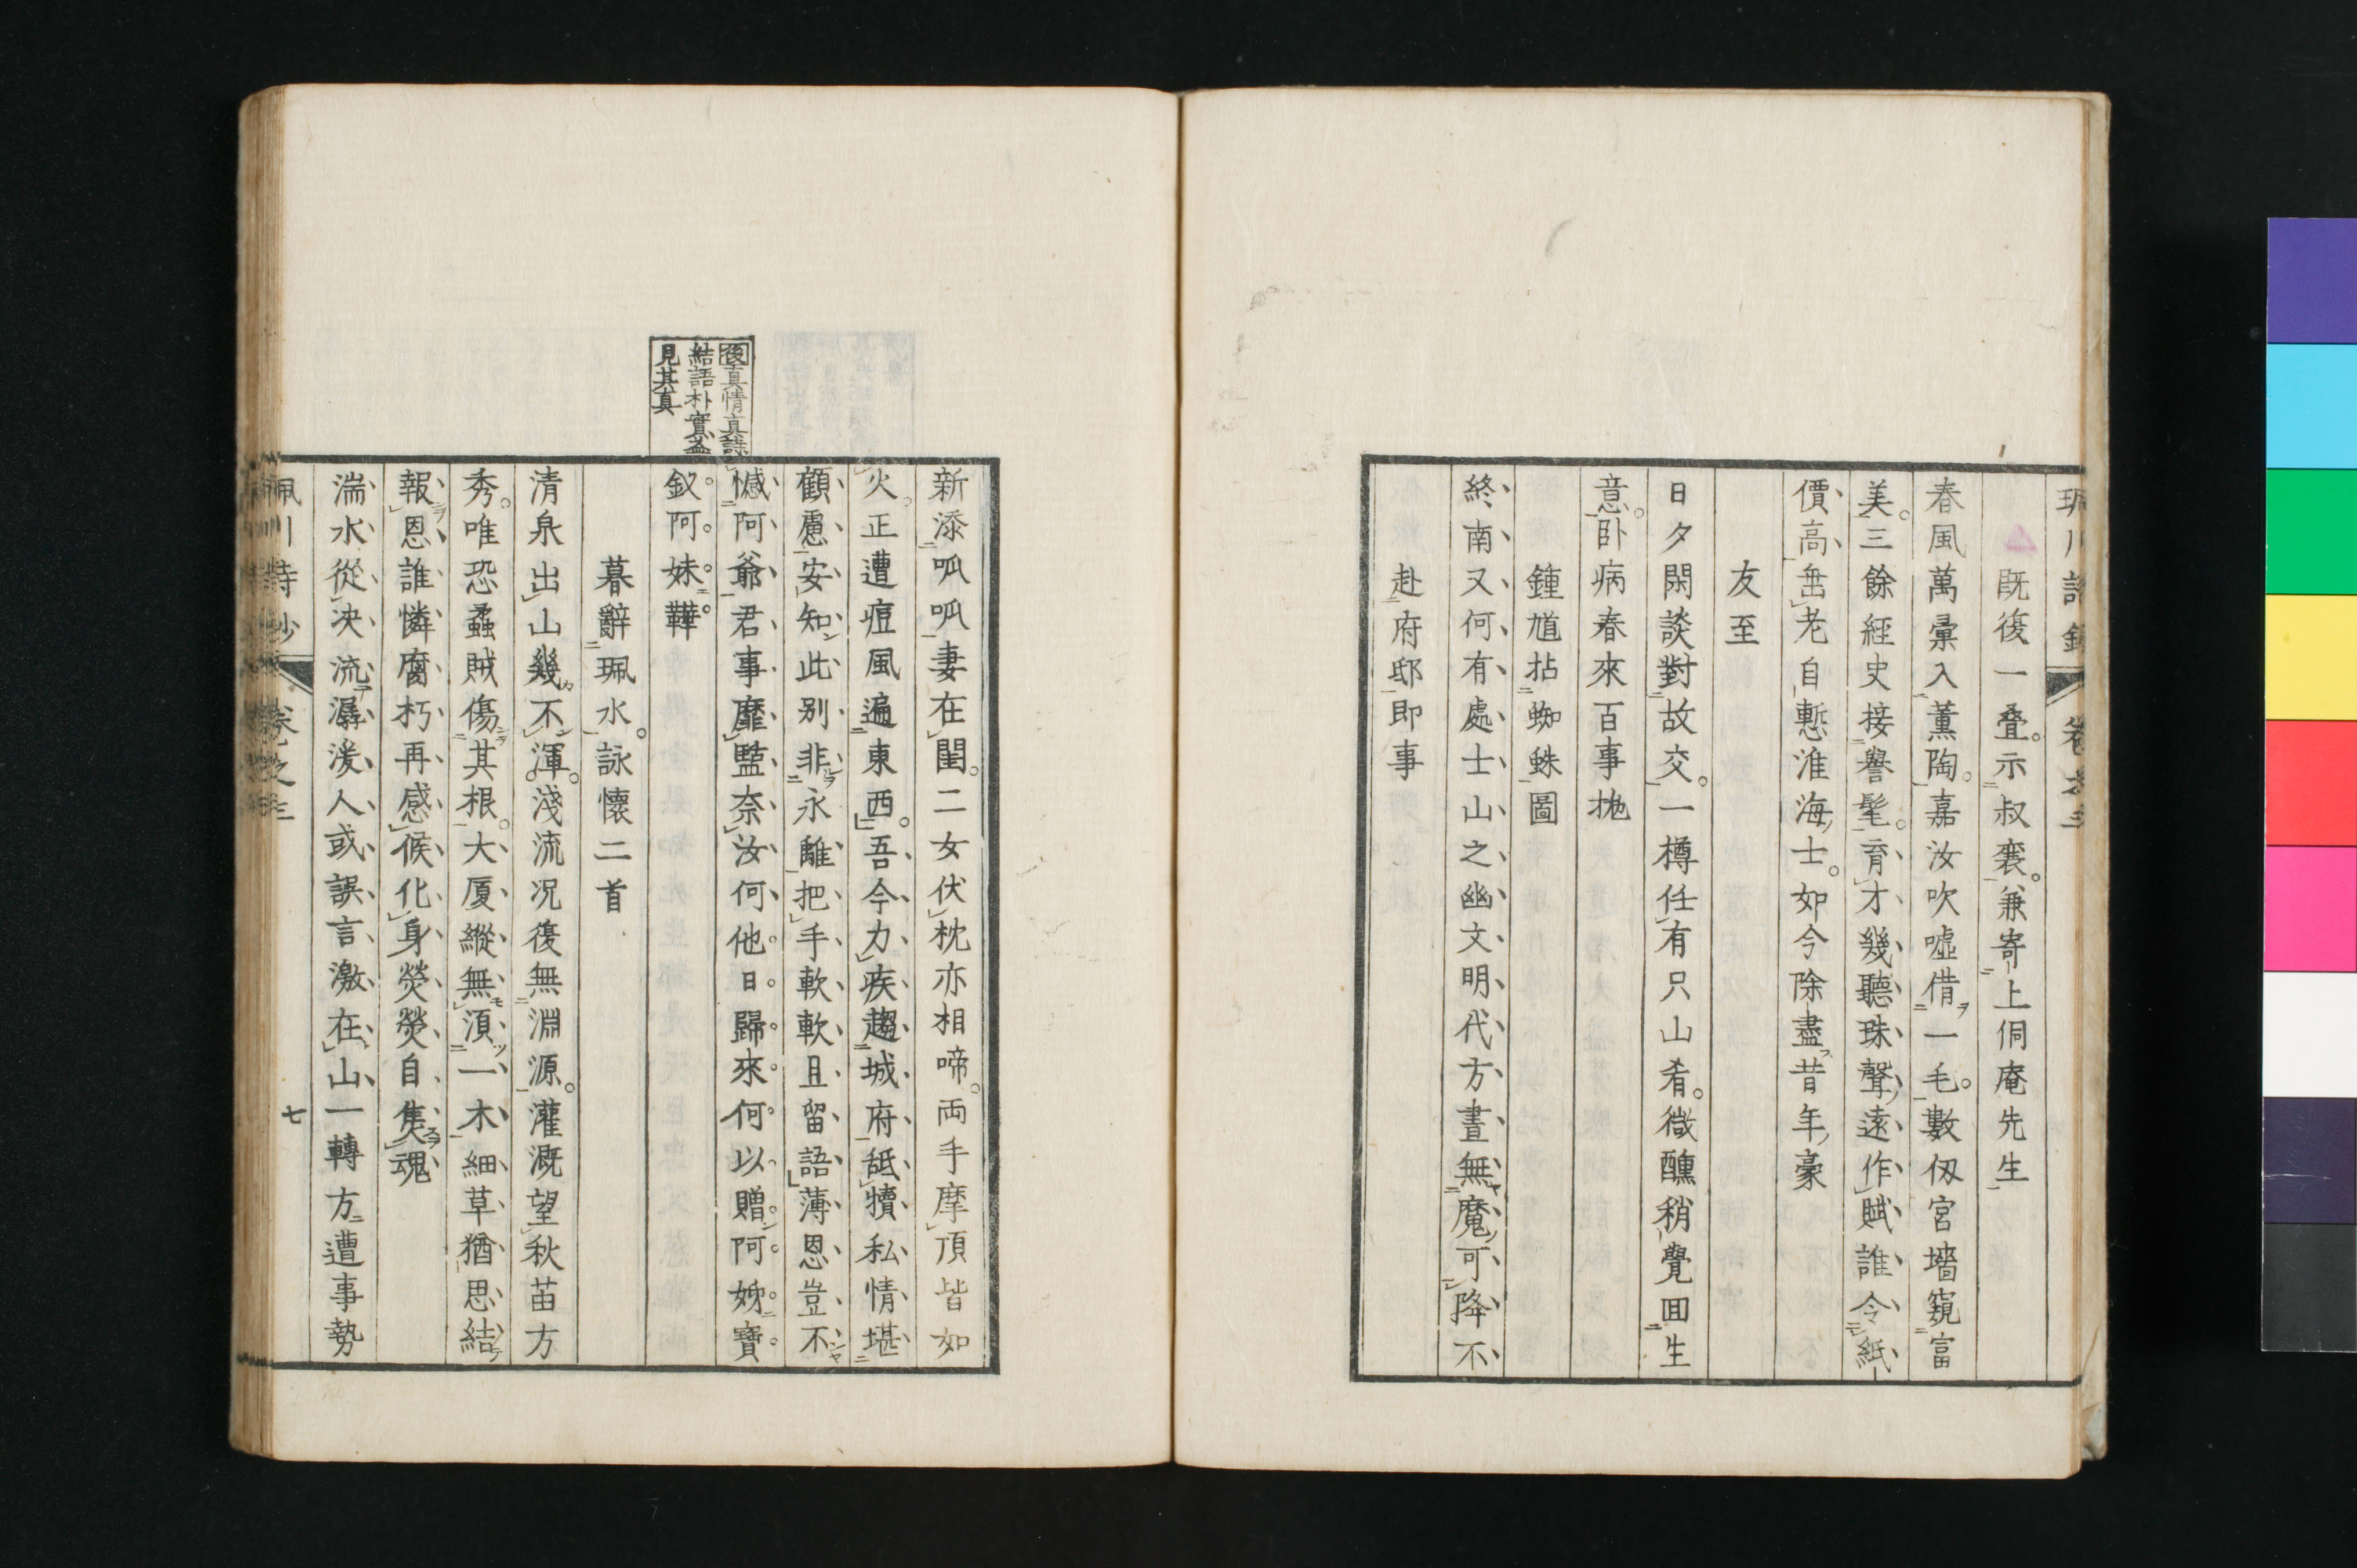 珮川詩鈔　卷之三
既復一疊示叔裘兼寄上侗庵先生
春風萬彙入薫陶嘉汝吹噓借一毛數仭宮墻窺富
美三餘經史接譽髦育才幾聽珠聲遠作賦誰令紙
價高垂老自慙淮海士如今除盡昔年豪
友至
日夕閑談對故交一樽任有只山肴微醺稍覺回生
意臥病春來百事抛
鍾馗拈蜘蛛圖
終南又何有處士山之幽文明代方晝無魔可降不
赴府邸即事
新添呱呱妻在閨二女伏枕亦相啼両手摩頂皆如
火正遭痘風遍東西吾今力疾趨城府舐犢私情堪
顧慮安知此別非永離把手軟軟且留語薄恩豈不
憾阿爺君事靡監奈汝何他日歸來何以贈阿姊寶
釵阿妹鞾
暮辭珮水詠懷二首
清泉出山幾不渾淺流況復無淵源灌漑望秋苗方
秀唯恐蟊賊傷其根大厦縱無須一木細草猶思結
報恩誰憐腐朽再感候化身熒熒自集魂
湍水從決流潺湲人或誤言激在山一轉方遭事勢
後真情真詩
結語朴實益
見其真
珮川詩鈔　卷之三　七